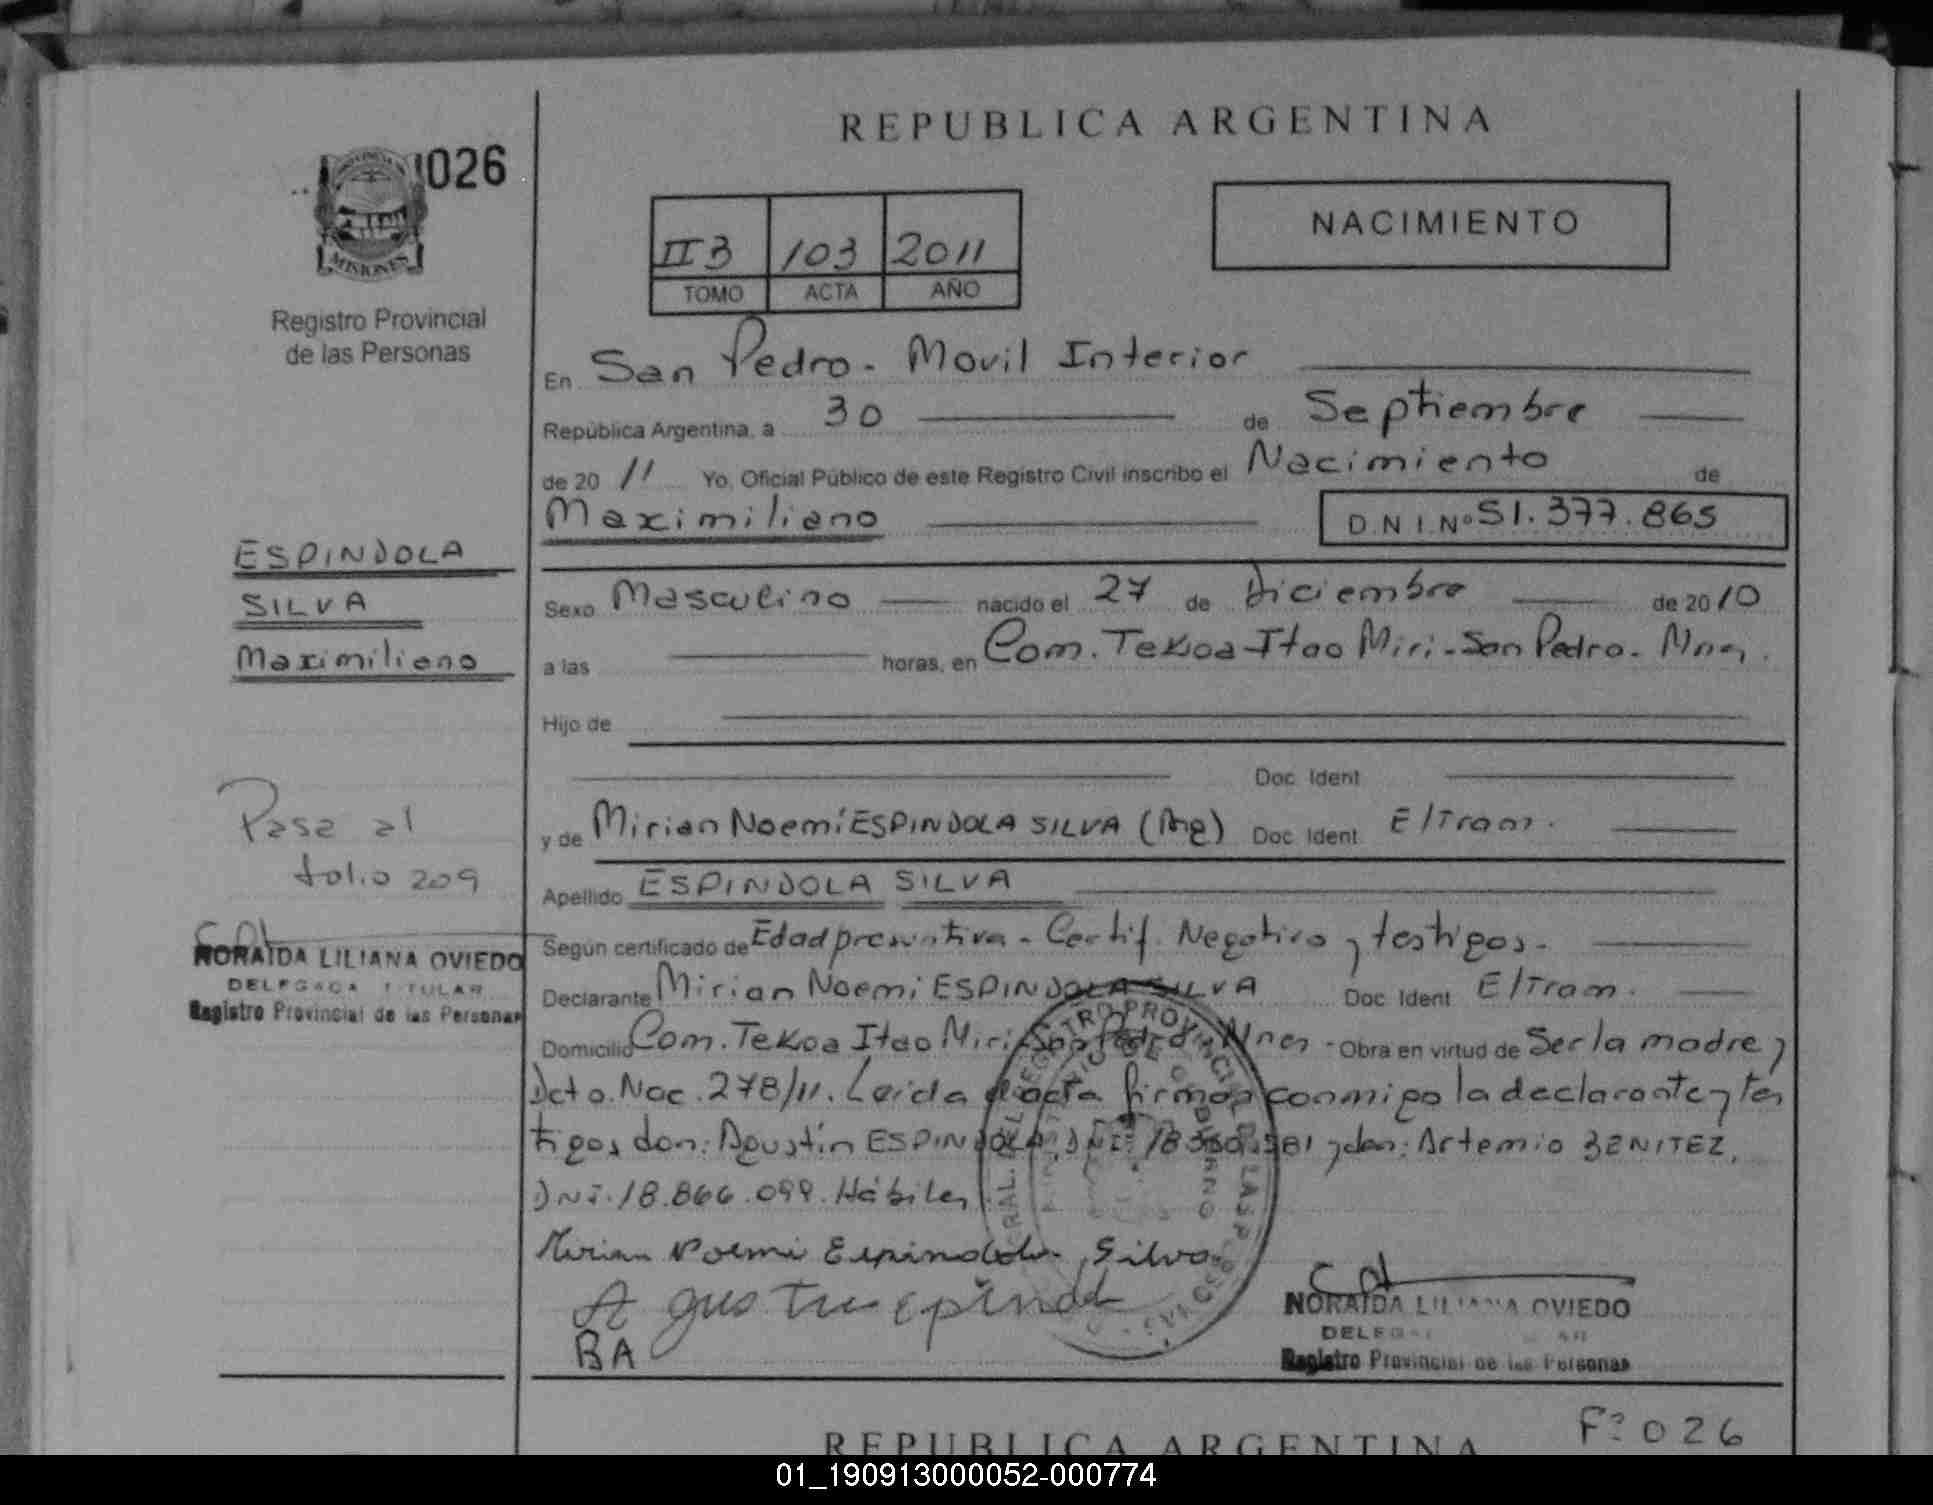 REPUBLICA ARGENTINA
026
MISIONES
Registro Provincial
de las Personas
II B 103 2011
TOMO ACTA AÑO
NACIMIENTO
En San Pedro - Movil Interior
República Argentina, a 30 de Septiembre
de 20 11 Yo, Oficial Público de este Registro Civil inscribo el Nacimiento de
Maximiliano D.N.I.Nº 51.377.865
ESPINDOLA
SILVA
Maximiliano
Sexo Masculino nacido el 27 de Diciembre de 2010
a las horas, en Com. Tekoa Itao Miri - San Pedro - Mnes.
Hijo de
Doc. Ident.
y de Mirian Noemí ESPINDOLA SILVA (Arg) Doc. Ident. E/Tram.
Apellido ESPINDOLA SILVA
Pasa al
folio 209
NORAIDA LILIANA OVIEDO
DELEGADA TITULAR
Registro Provincial de las Personas
Según certificado de Edad presuntiva - Certif. Negativo y testigos -
Declarante Mirian Noemi ESPINDOLA SILVA Doc. Ident. E/Tram.
Domicilio Com. Tekoa Itao Miri San Pedro Mnes - Obra en virtud de Ser la madre y
Dcto. Nac. 278/11. Leida el acta firman conmigo la declarante y tes
tigos don: Agustín ESPINDOLA, DNI: 18.360.581 y don: Artemio BENITEZ,
DNI. 18.866.099. Hábiles
Mirian Noemi Espindola Silva
Agustin espindola
BA
NORAIDA LILIANA OVIEDO
Registro Provincial de las Personas
Fº 026
REPUBLICA ARGENTINA
01_190913000052-000774